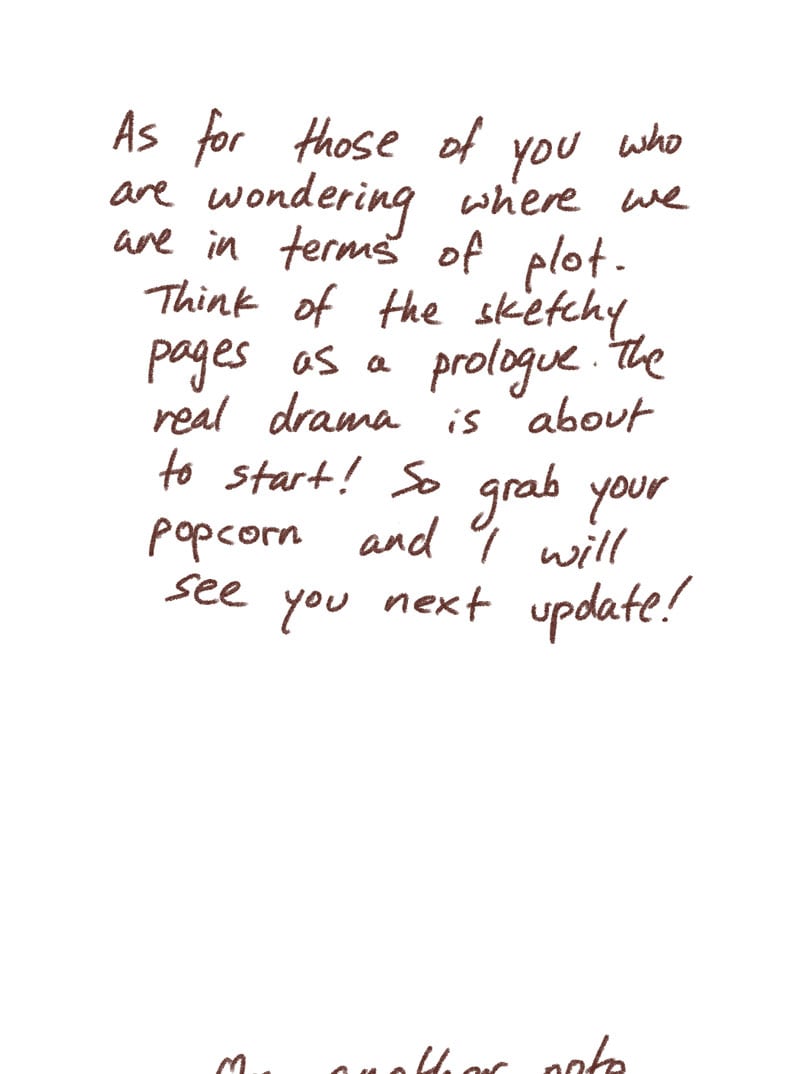 As for those of you who
are wondering where we
are in terms of plot.
Think of the sketchy
pages as a prologue. The
real drama is about
to start! So grab your
popcorn and I will
see you next update!
another note